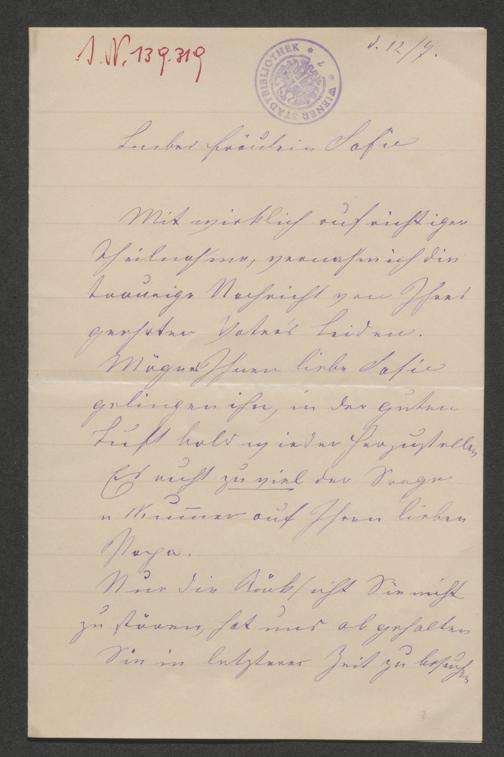 I.N. 139.319
WIENER STADTBIBLIOTHEK
d. 12/9.
Liebes Fräulein Sofie
Mit wirklich aufrichtiger
Theilnahme, vernahm ich die
traurige Nachricht von Ihres
geehrten Vaters Leiden.
Möge es Ihnen liebe Sofie
gelingen ihn, in der guten
Luft bald wieder herzustellen
Es ruht zu viel der Sorge
u Kummer auf Ihrem lieben
Papa.
Nur die Rücksicht Sie nicht
zu stören, hat uns abgehalten
Sie in letzterer Zeit zu besuchen